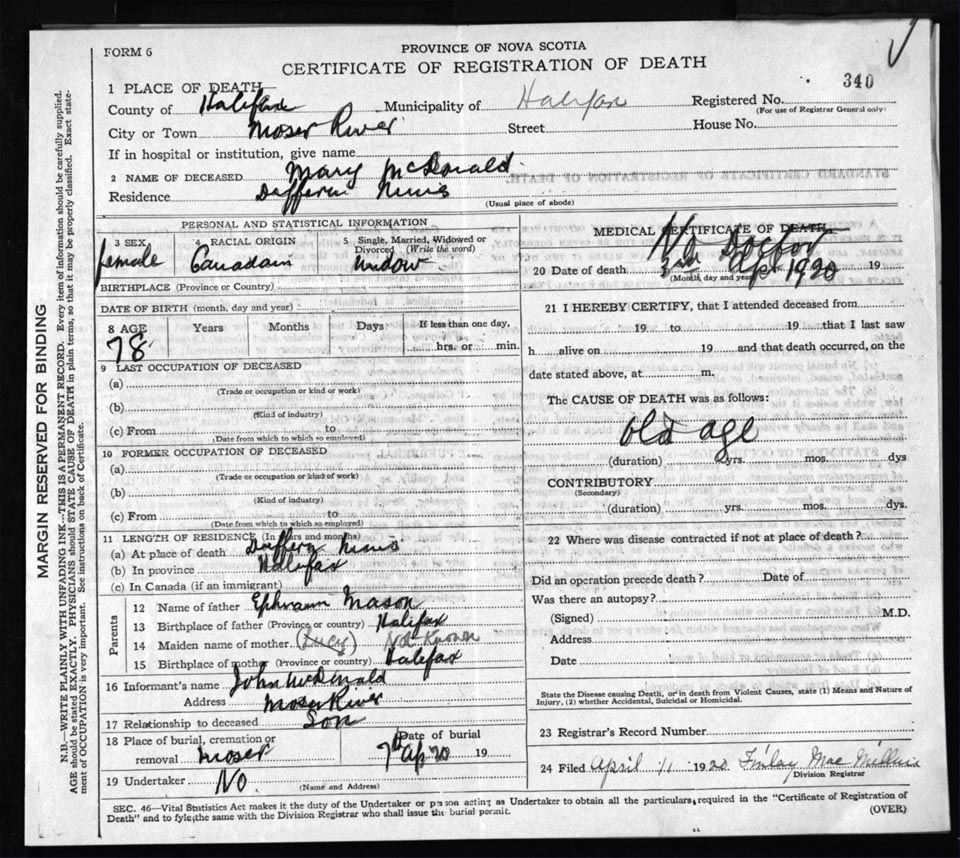 FORM 6
PROVINCE OF NOVA SCOTIA
CERTIFICATE OF REGISTRATION OF DEATH
340
1 PLACE OF DEATH
County of Halifax Municipality of Halifax Registered No.
(For use of Registrar General only)
City or Town Moser River Street House No.
If in hospital or institution, give name
2 NAME OF DECEASED Mary McDonald
Residence Dufferin
(Usual place of abode)
PERSONAL AND STATISTICAL INFORMATION
3 SEX 4 RACIAL ORIGIN 5 Single, Married, Widowed or Divorced (Write the word)
female Canadain widow
BIRTHPLACE (Province or Country)
DATE OF BIRTH (month, day and year)
8 AGE Years Months Days If less than one day,
78 hrs. or min.
9 LAST OCCUPATION OF DECEASED
(a)
(Trade or occupation or kind or work)
(b)
(Kind of industry)
(c) From to
(Date from which to which so employed)
10 FORMER OCCUPATION OF DECEASED
(a)
(Trade or occupation or kind of work)
(b)
(Kind of industry)
(c) From to
(Date from which to which so employed)
11 LENGTH OF RESIDENCE (In years and months)
(a) At place of death
(b) In province Halifax
(c) In Canada (if an immigrant)
Parents
12 Name of father Ephraim Mason
13 Birthplace of father (Province or country) Halifax
14 Maiden name of mother (Lucy) Not Known
15 Birthplace of mother (Province or country) Halifax
16 Informant's name John McDonald
Address Moser River
17 Relationship to deceased Son
18 Place of burial, cremation or removal Moser Date of burial 7th Ap 20 19
19 Undertaker No.
(Name and Address)
MEDICAL CERTIFICATE OF DEATH
No Doctor
20 Date of death 3rd Apr 1920 19
(Month, day and year)
21 I HEREBY CERTIFY, that I attended deceased from
19 to 19 that I last saw
h alive on 19 and that death occurred, on the
date stated above, at m.
The CAUSE OF DEATH was as follows:
Old age
(duration) yrs. mos. dys
CONTRIBUTORY
(Secondary)
(duration) yrs. mos. dys
22 Where was disease contracted if not at place of death?
Did an operation precede death? Date of
Was there an autopsy?
(Signed) M.D.
Address
Date
State the Disease causing Death, or in death from Violent Causes, state (1) Means and Nature of
Injury, (2) whether Accidental, Suicidal or Homicidal.
23 Registrar's Record Number
24 Filed April 11 1920 Finlay
Division Registrar
SEC. 46—Vital Statistics Act makes it the duty of the Undertaker or person acting as Undertaker to obtain all the particulars required in the "Certificate of Registration of
Death" and to fyle the same with the Division Registrar who shall issue the burial permit.
(OVER)
MARGIN RESERVED FOR BINDING
N.B.—WRITE PLAINLY WITH UNFADING INK—THIS IS A PERMANENT RECORD. Every item of information should be carefully supplied.
AGE should be stated EXACTLY. PHYSICIANS should STATE CAUSE OF DEATH in plain terms, so that it may be properly classified. Exact state-
ment of OCCUPATION is very important. See instructions on back of Certificate.